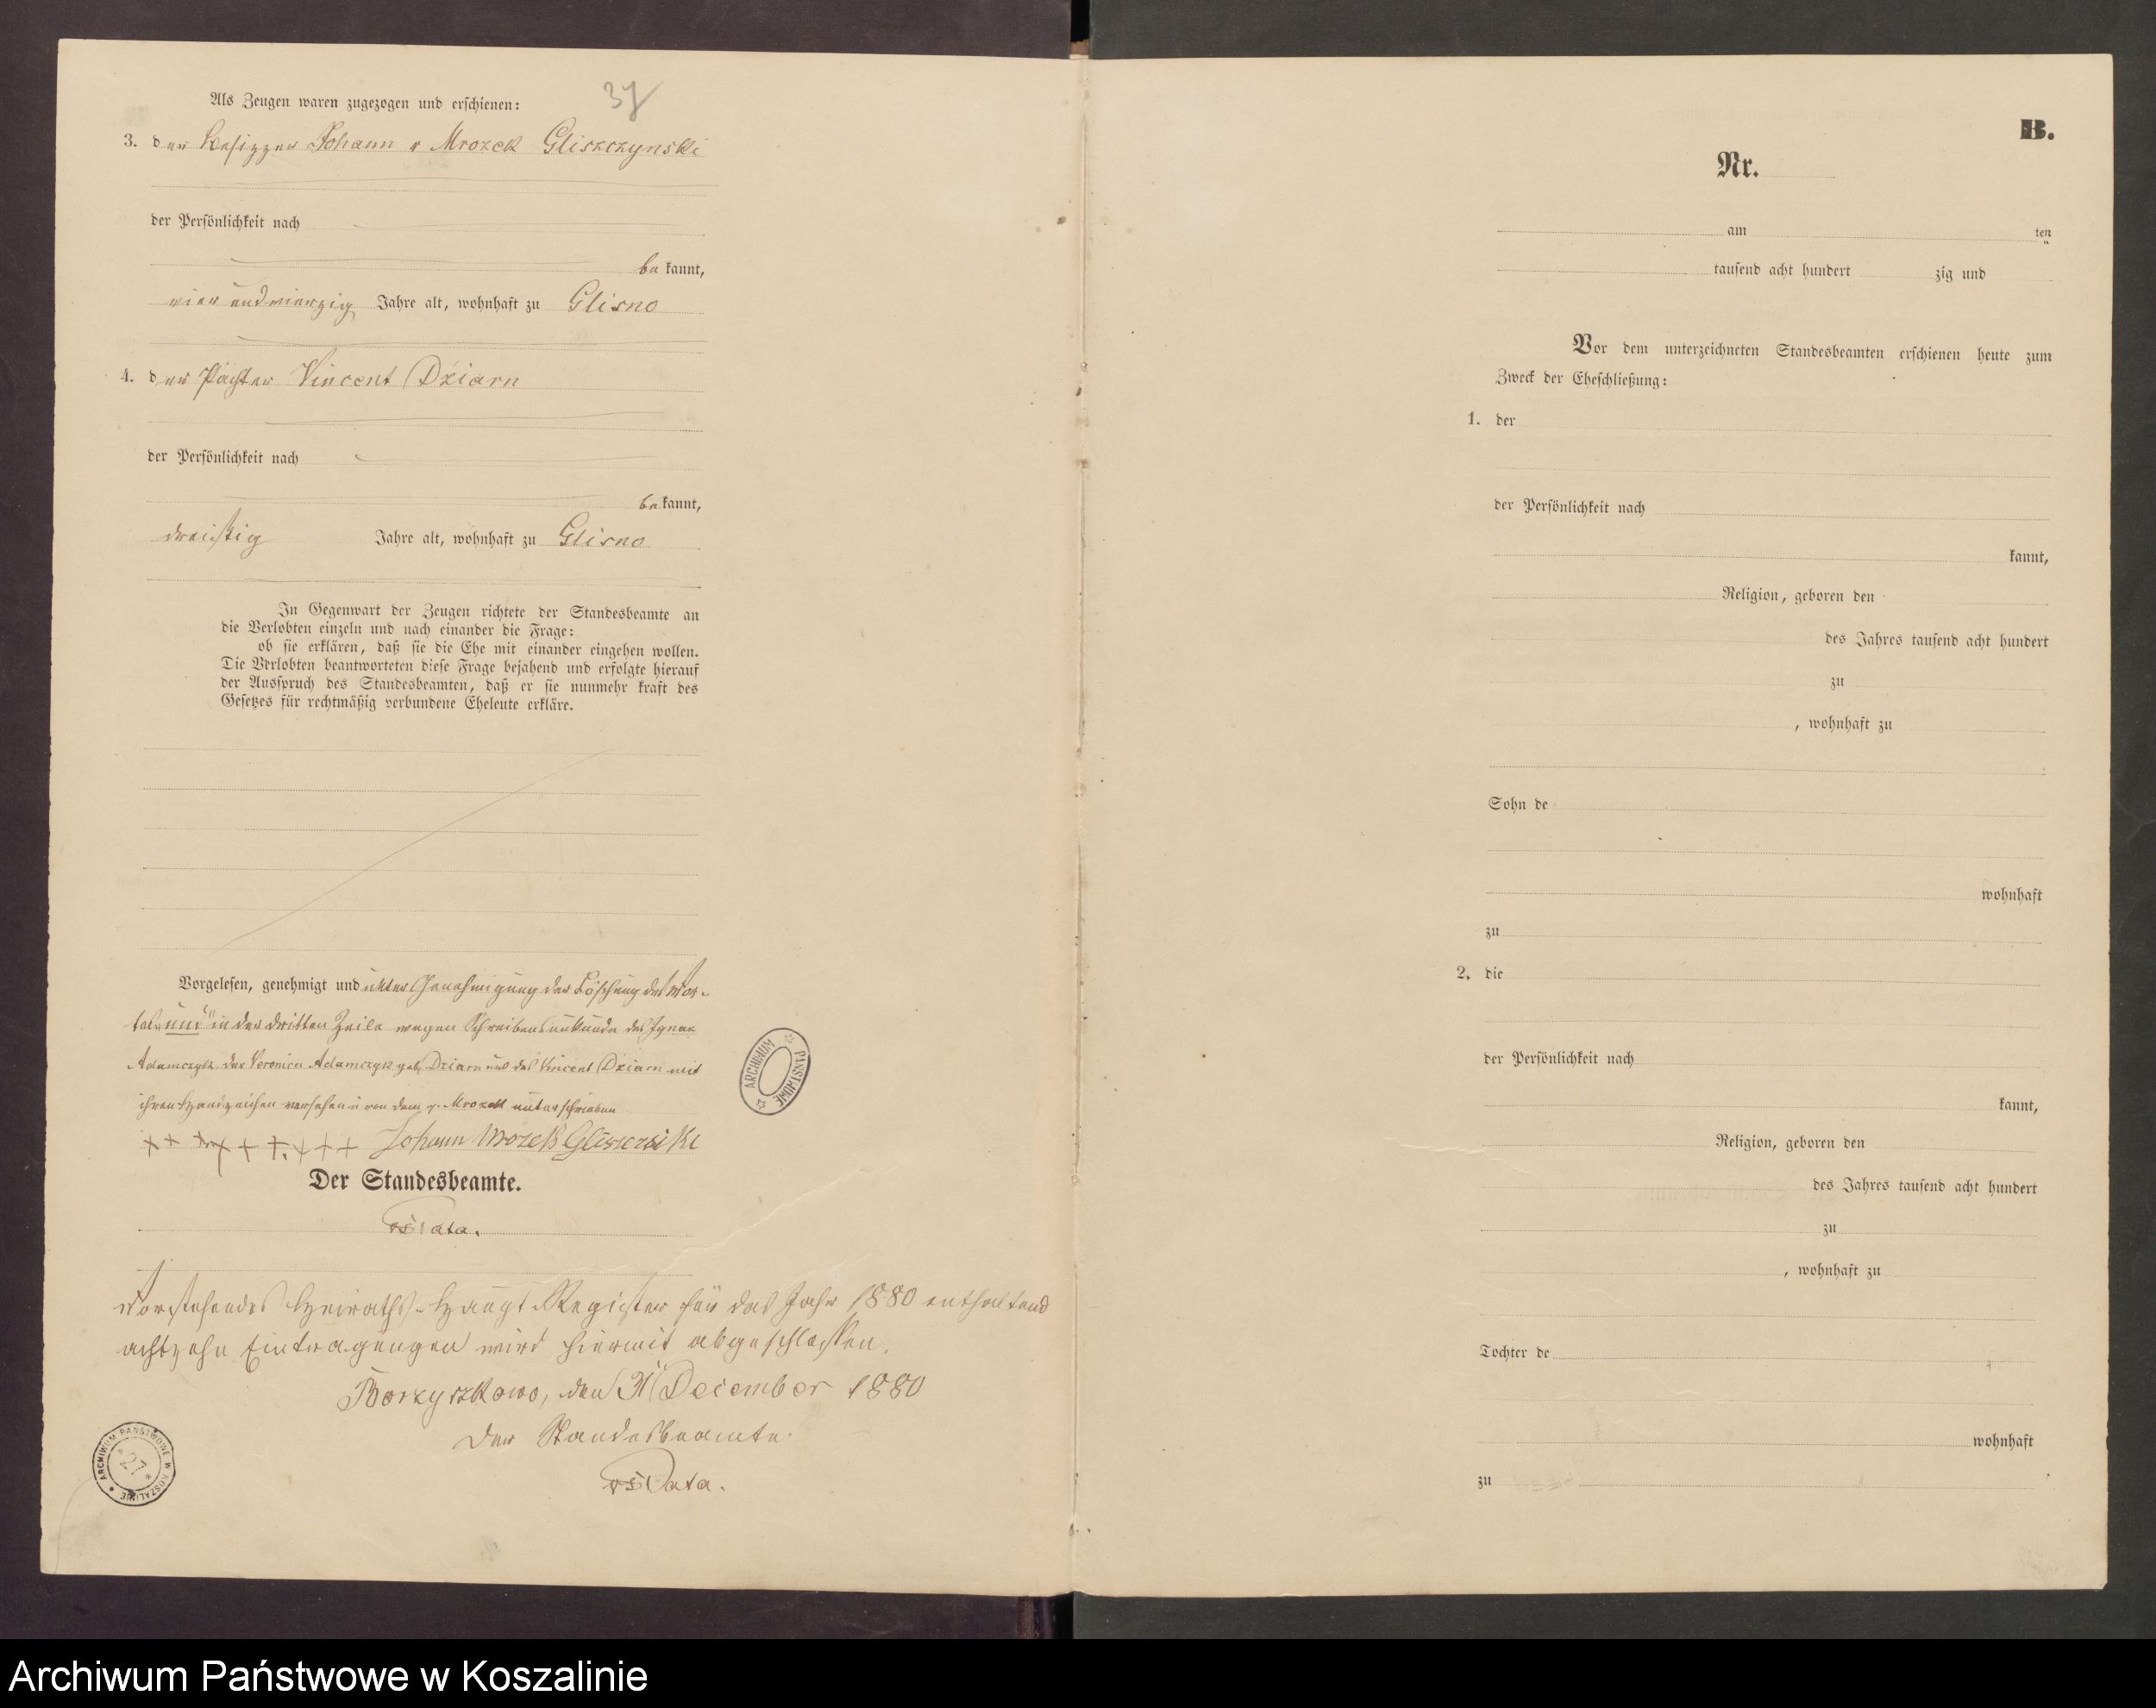 37
Als Zeugen waren zugezogen und erschienen:
3. der Besitzer Johann v Mrozek Gliszczynski
der Persönlichkeit nach
be kannt,
vier und vierzig Jahre alt, wohnhaft zu Glisno
4. der Pächter Vincent Dziarn
der Persönlichkeit nach
be kannt,
dreißig Jahre alt, wohnhaft zu Glisno
In Gegenwart der Zeugen richtete der Standesbeamte an
die Verlobten einzeln und nach einander die Frage:
ob sie erklären, daß sie die Ehe mit einander eingehen wollen.
Die Verlobten beantworteten diese Frage bejahend und erfolgte hierauf
der Ausspruch des Standesbeamten, daß er sie nunmehr kraft des
Gesetzes für rechtmäßig verbundene Eheleute erkläre.
Vorgelesen, genehmigt und unter Genehmigung der Löschung des Wor-
tes „und" in der dritten Zeile wegen Schreibensunkunde des Ignaz
Adamczyk der Veronica Adamczyk geb. Dziarn und des Vincent Dziarn mit
ihren Handzeichen versehen u von dem v. Mrozek unterschrieben
+ + + + + + + + Johann Mrozek
Der Standesbeamte.
Vorstehendes Heiraths-Haupt-Register für das Jahr 1880 enthaltend
achtzehn Eintragungen wird hiermit abgeschlossen.
Borzyszkowo, den 31 December 1880
Der Standesbeamte.
ARCHIWUM PAŃSTWOWE
ARCHIWUM PAŃSTWOWE W KOSZALINIE
27
B.
Nr.
am ten
tausend acht hundert zig und
Vor dem unterzeichneten Standesbeamten erschienen heute zum
Zweck der Eheschließung:
1. der
der Persönlichkeit nach
kannt,
Religion, geboren den
des Jahres tausend acht hundert
zu
, wohnhaft zu
Sohn de
wohnhaft
zu
2. die
der Persönlichkeit nach
kannt,
Religion, geboren den
des Jahres tausend acht hundert
zu
, wohnhaft zu
Tochter de
wohnhaft
zu
Archiwum Państwowe w Koszalinie